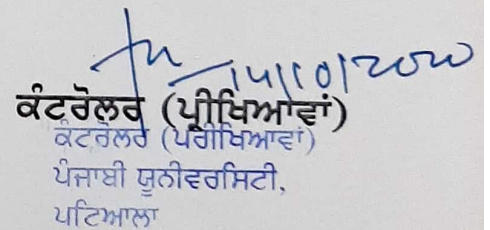 14/10/2020
ਕੰਟਰੋਲਰ (ਪ੍ਰੀਖਿਆਵਾਂ)
ਕੰਟਰੋਲਰ (ਪਰੀਖਿਆਵਾਂ)
ਪੰਜਾਬੀ ਯੂਨੀਵਰਸਿਟੀ,
ਪਟਿਆਲਾ